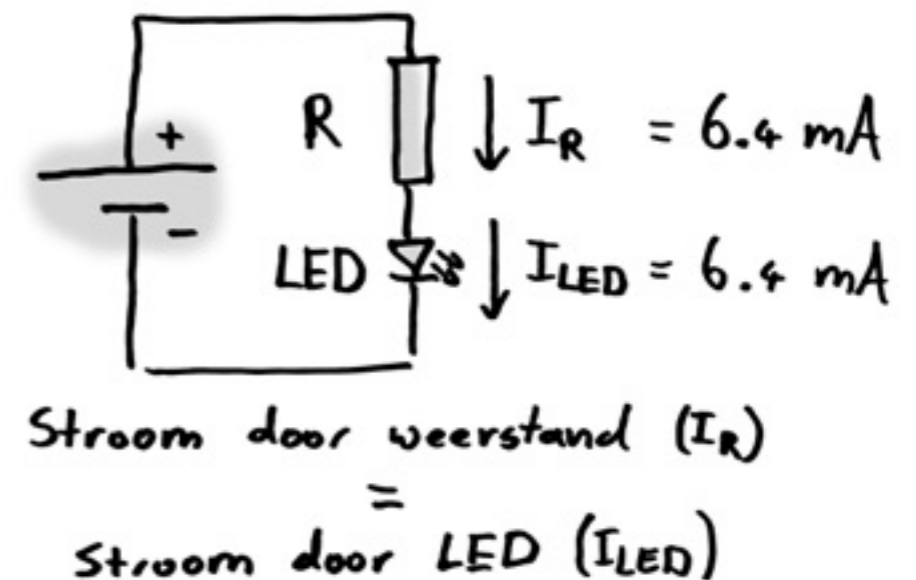 +
-
R
I_R = 6.4 mA
LED
I_LED = 6.4 mA
Stroom door weerstand (I_R)
=
Stroom door LED (I_LED)